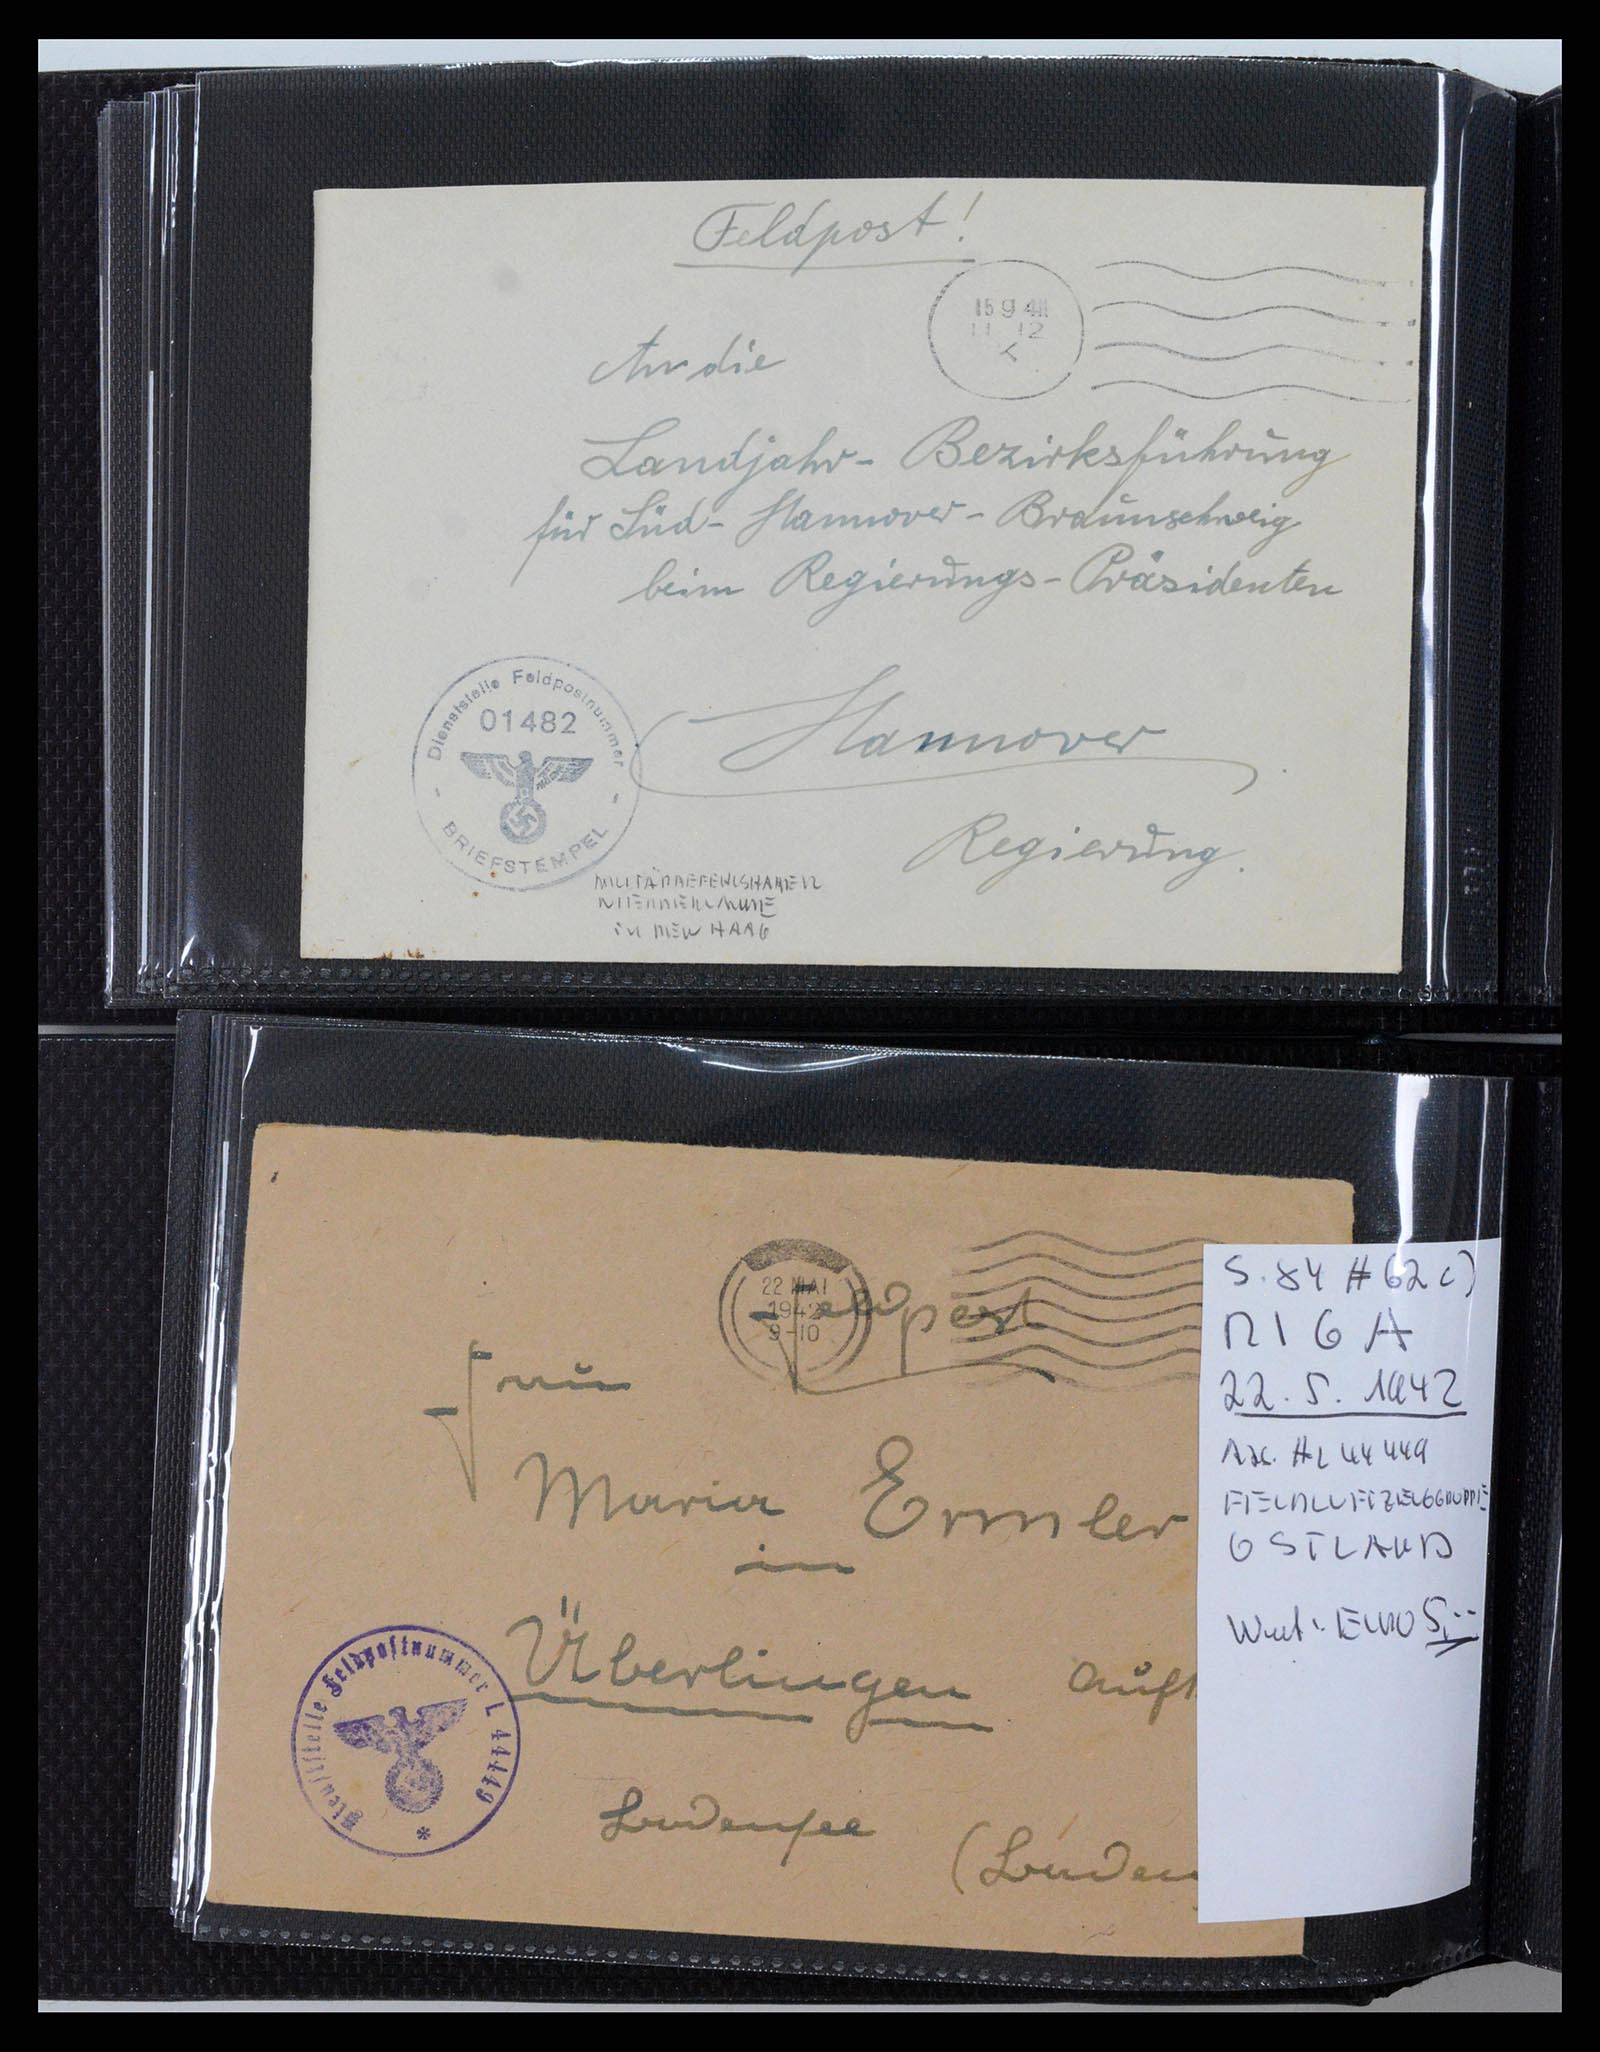 Feldpost!
15 9 41
11 12
An die
Landjahr-Bezirksführung
für Süd-Hannover-Braunschweig
beim Regierungs-Präsidenten
Hannover
Regierung.
Dienststelle Feldpostnummer
01482
BRIEFSTEMPEL
MILITÄRBEFEHLSHABER
NIEDERLANDE
in DEN HAAG
22 MAI
1942
9-10
Feldpost
Frau
Maria Ermler
in
Überlingen
Bodensee
Dienststelle Feldpostnummer L 44449
*
S. 84 # 62 c)
RIGA
22. 5. 1942
Abs. # L 44449
OSTLAND
Wert: EURO 5,--